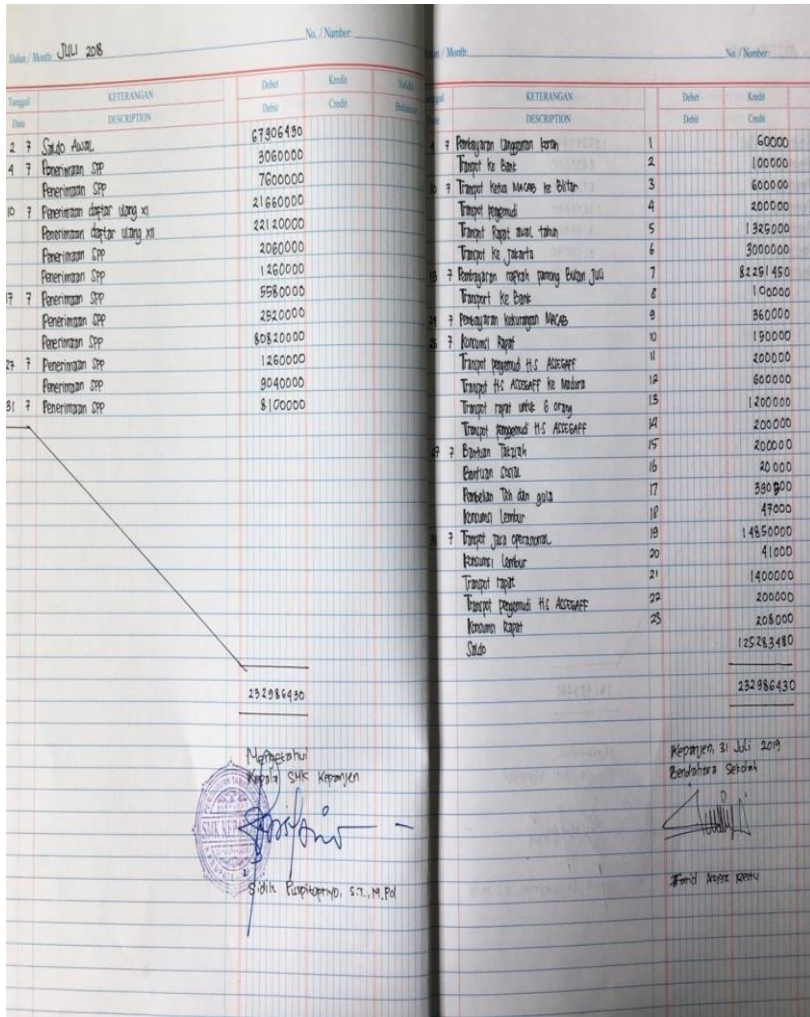 Bulan / Month: JULI 2018
No. / Number:
Tanggal KETERANGAN Debet Kredit Saldo
Date DESCRIPTION Debit Credit Balance
2 7 Saldo Awal 67906430
4 7 Penerimaan SPP 3060000
Penerimaan SPP 7600000
10 7 Penerimaan daftar ulang XI 21660000
Penerimaan daftar ulang XII 22120000
Penerimaan SPP 2060000
Penerimaan SPP 1260000
17 7 Penerimaan SPP 5580000
Penerimaan SPP 2520000
Penerimaan SPP 80820000
27 7 Penerimaan SPP 1260000
Penerimaan SPP 9040000
31 7 Penerimaan SPP 8100000
232986430
Mengetahui
Kepala SMK Kepanjen
SMK KEP
Sidik Puspitoptiyo, S.T., M.Pd
Month:
No. / Number:
KETERANGAN Debet Kredit
DESCRIPTION Debit Credit
7 Pembayaran langganan koran 1 60000
Transpot ke Bank 2 100000
7 Transpot Ketua MACAB ke Blitar 3 600000
Transpot pengemudi 4 200000
Transpot Rapat awal tahun 5 1325000
Transpot ke Jakarta 6 3000000
7 Pembayaran rapelan pamong Bulan Juli 7 82251450
Transport ke Bank 8 100000
7 Pembayaran kekurangan MACAB 9 360000
7 Konsumsi Rapat 10 150000
Transpot pengemudi H.S ASSEGAFF 11 200000
Transpot H.S ASSEGAFF ke Madura 12 600000
Transpot rapat untuk 6 orang 13 1200000
Transpot penggemudi H.S ASSEGAFF 14 200000
7 Bantuan Takziah 15 200000
Bantuan Sosial 16 20000
Pembelian Teh dan gula 17
Konsumsi Lembur 18 47000
7 Transpot jasa operasional 19 14850000
Konsumsi Lembur 20 41000
Transpot rapat 21 1400000
Transpot pengemudi H.S ASSEGAFF 22 200000
Konsumsi Rapat 23 208000
Saldo 125283480
232986430
Kepanjen, 31 Juli 2019
Bendahara Sekolah